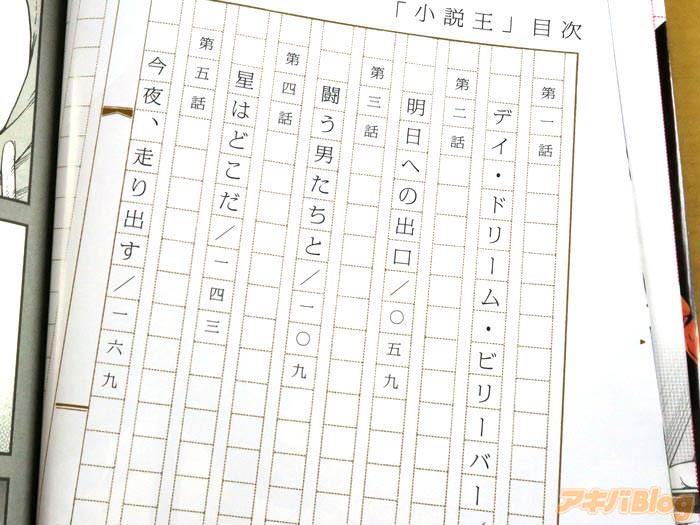 「小説王」目次
第一話
デイ・ドリーム・ビリーバー／
第二話
明日への出口／〇五九
第三話
闘う男たちと／一〇九
第四話
星はどこだ／一四三
第五話
今夜、走り出す／一六九
アキバBlog